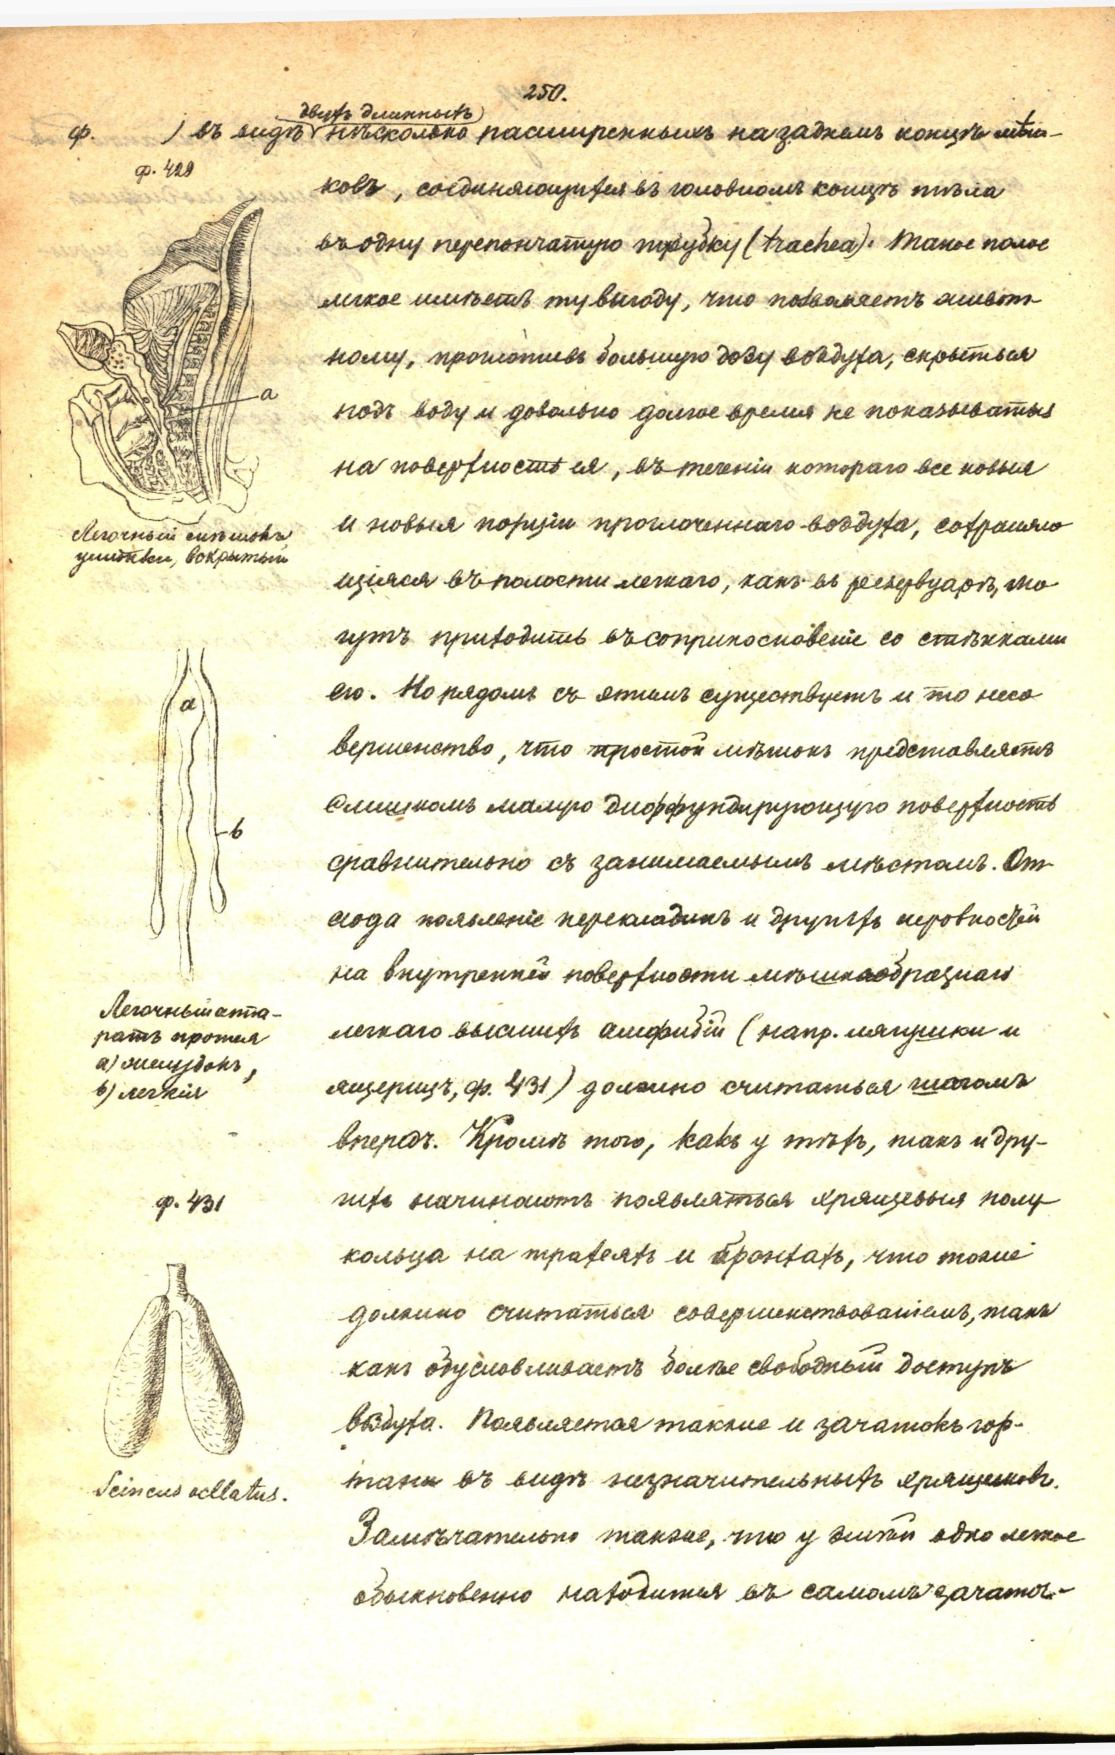 250.
двухъ длинныхъ
ф. ) въ видѣ нѣсколько расширенныхъ на заднемъ концѣ мѣш-
ковъ, соединяющихся въ головномъ концѣ тѣла
въ одну перепончатую трубку (trachea). Такое полое
легкое имѣетъ ту выгоду, что позволяетъ живот-
ному, проглотивъ большую дозу воздуха, скрыться
подъ воду и довольно долгое время не показываться
на поверхность ея, въ теченіи котораго все новыя
и новыя порціи проглоченнаго воздуха, сохраняю
щіяся въ полости легкаго, какъ въ резервуарѣ, мо
гутъ приходить въ соприкосновеніе со стѣнками
его. Но рядомъ съ этимъ существуетъ и то несо
вершенство, что простой мѣшокъ представляетъ
слишкомъ малую диффундирующую поверхность
сравнительно съ занимаемымъ мѣстомъ. От
сюда появленіе перекладинъ и другихъ неровностей
на внутренней поверхности мѣшкообразнаго
легкаго высшихъ амфибій (напр. лягушки и
ящерицъ, ф. 431) должно считаться шагомъ
впередъ. Кромѣ того, какъ у тѣхъ, такъ и дру-
гихъ начинаютъ появляться хрящевыя полу-
кольца на трахеяхъ и бронхахъ, что тоже
должно считаться совершенствованіемъ, такъ
какъ обусловливаетъ болѣе свободный доступъ
воздуха. Появляется также и зачатокъ гор-
тани въ видѣ незначительныхъ хрящиковъ.
Замѣчательно также, что у змѣй одно легкое
обыкновенно находится въ самомъ зачаточ-
ф. 429
a
Легочный мѣшокъ
улитки, вскрытый
a
b
Легочный аппа-
ратъ протея
a) желудокъ,
b) легкія
ф. 431
Scincus ocllatus.